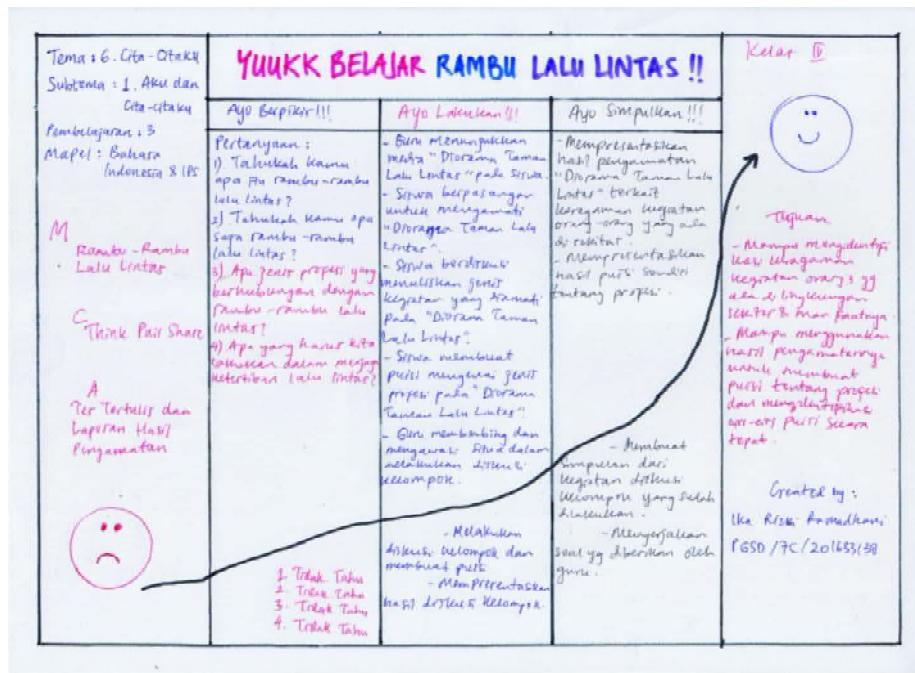 Tema : 6. Cita-Citaku
Subtema : 1. Aku dan
Cita-citaku
Pembelajaran : 3
Mapel : Bahasa
Indonesia & IPS
M
Rambu-Rambu
Lalu Lintas
C
Think Pair Share
A
Tes Tertulis dan
Laporan Hasil
Pengamatan
YUUKK BELAJAR RAMBU LALU LINTAS !!
Ayo Berpikir!!!
Pertanyaan :
1) Tahukah kamu
apa itu rambu-rambu
lalu lintas?
2) Tahukah kamu apa
saja rambu-rambu
lalu lintas?
3) Apa jenis profesi yang
berhubungan dengan
rambu-rambu lalu
lintas?
4) Apa yang harus kita
lakukan dalam menjaga
ketertiban lalu lintas?
1. Tidak Tahu
2. Tidak Tahu
3. Tidak Tahu
4. Tidak Tahu
Ayo Lakukan!!!
- Guru menunjukkan
media "Diorama Taman
Lalu Lintas" pada siswa.
- Siswa berpasangan
untuk mengamati
"Diorama Taman Lalu
Lintas".
- Siswa berdiskusi
menuliskan jenis
kegiatan yang diamati
pada "Diorama Taman
Lalu Lintas".
- Siswa membuat
puisi mengenai jenis
profesi pada "Diorama
Taman Lalu Lintas".
- Guru membimbing dan
mengawasi siswa dalam
melakukan diskusi
kelompok.
- Melakukan
diskusi kelompok dan
membuat puisi
- Mempresentasikan
hasil diskusi kelompok.
Ayo Simpulkan!!!
- Mempresentasikan
hasil pengamatan
"Diorama Taman Lalu
Lintas" terkait
keragaman kegiatan
orang-orang yang ada
di sekitar.
- Mempresentasikan
hasil puisi sendiri
tentang profesi.
- Membuat
simpulan dari
kegiatan diskusi
kelompok yang sudah
dilakukan.
- Mengerjakan
soal yg diberikan oleh
guru.
Kelas IV
Tujuan
- Mampu mengidentifi
kasi keragaman
kegiatan orang2 yg
ada di lingkungan
sekitar & manfaatnya.
- Mampu menggunakan
hasil pengamatannya
untuk membuat
puisi tentang profesi
dan mengidentifikasi
ciri-ciri puisi secara
tepat.
Created by :
Ika Rizki Ramadhani
PGSD/7C/201633138